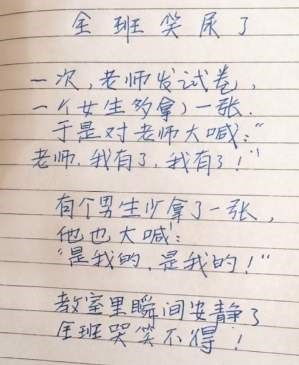 全班笑尿了
一次,老师发试卷,
一个女生多拿了一张.
于是对老师大喊:“
老师,我有了,我有了!”
有个男生少拿了一张,
他也大喊:
“是我的,是我的!”
教室里瞬间安静了
全班哭笑不得!